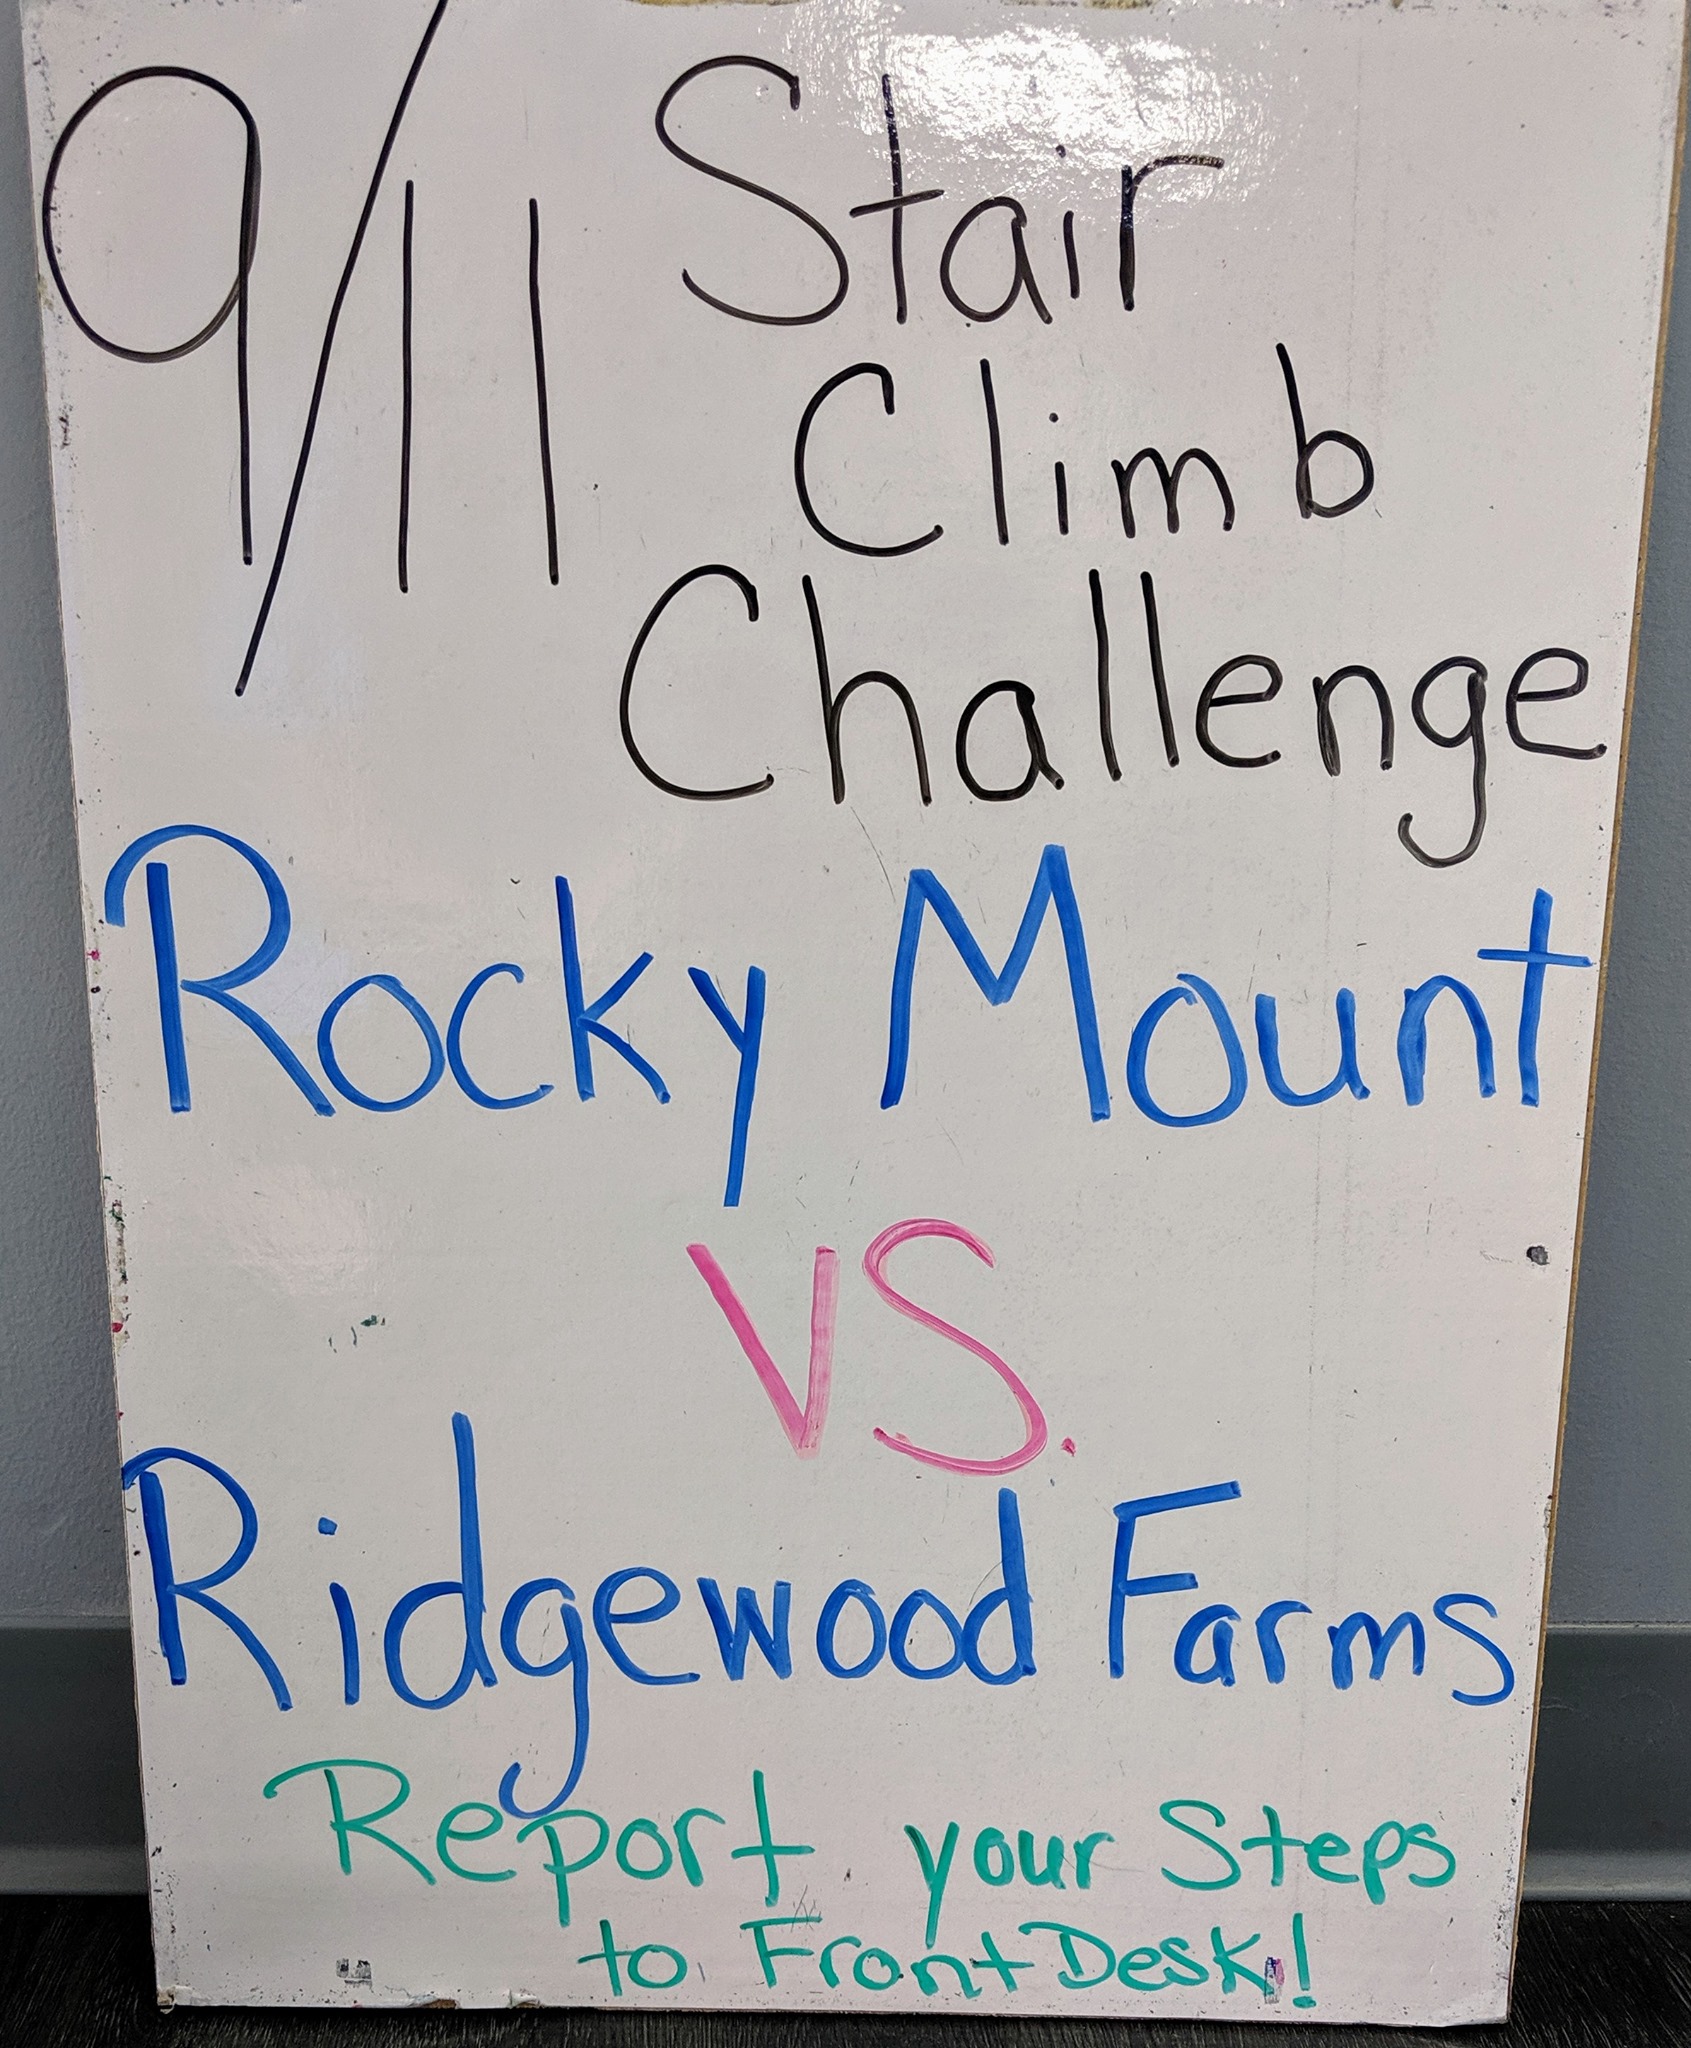 9/11 Stair
Climb
Challenge
Rocky Mount
VS.
Ridgewood Farms
Report your Steps
to Front Desk!